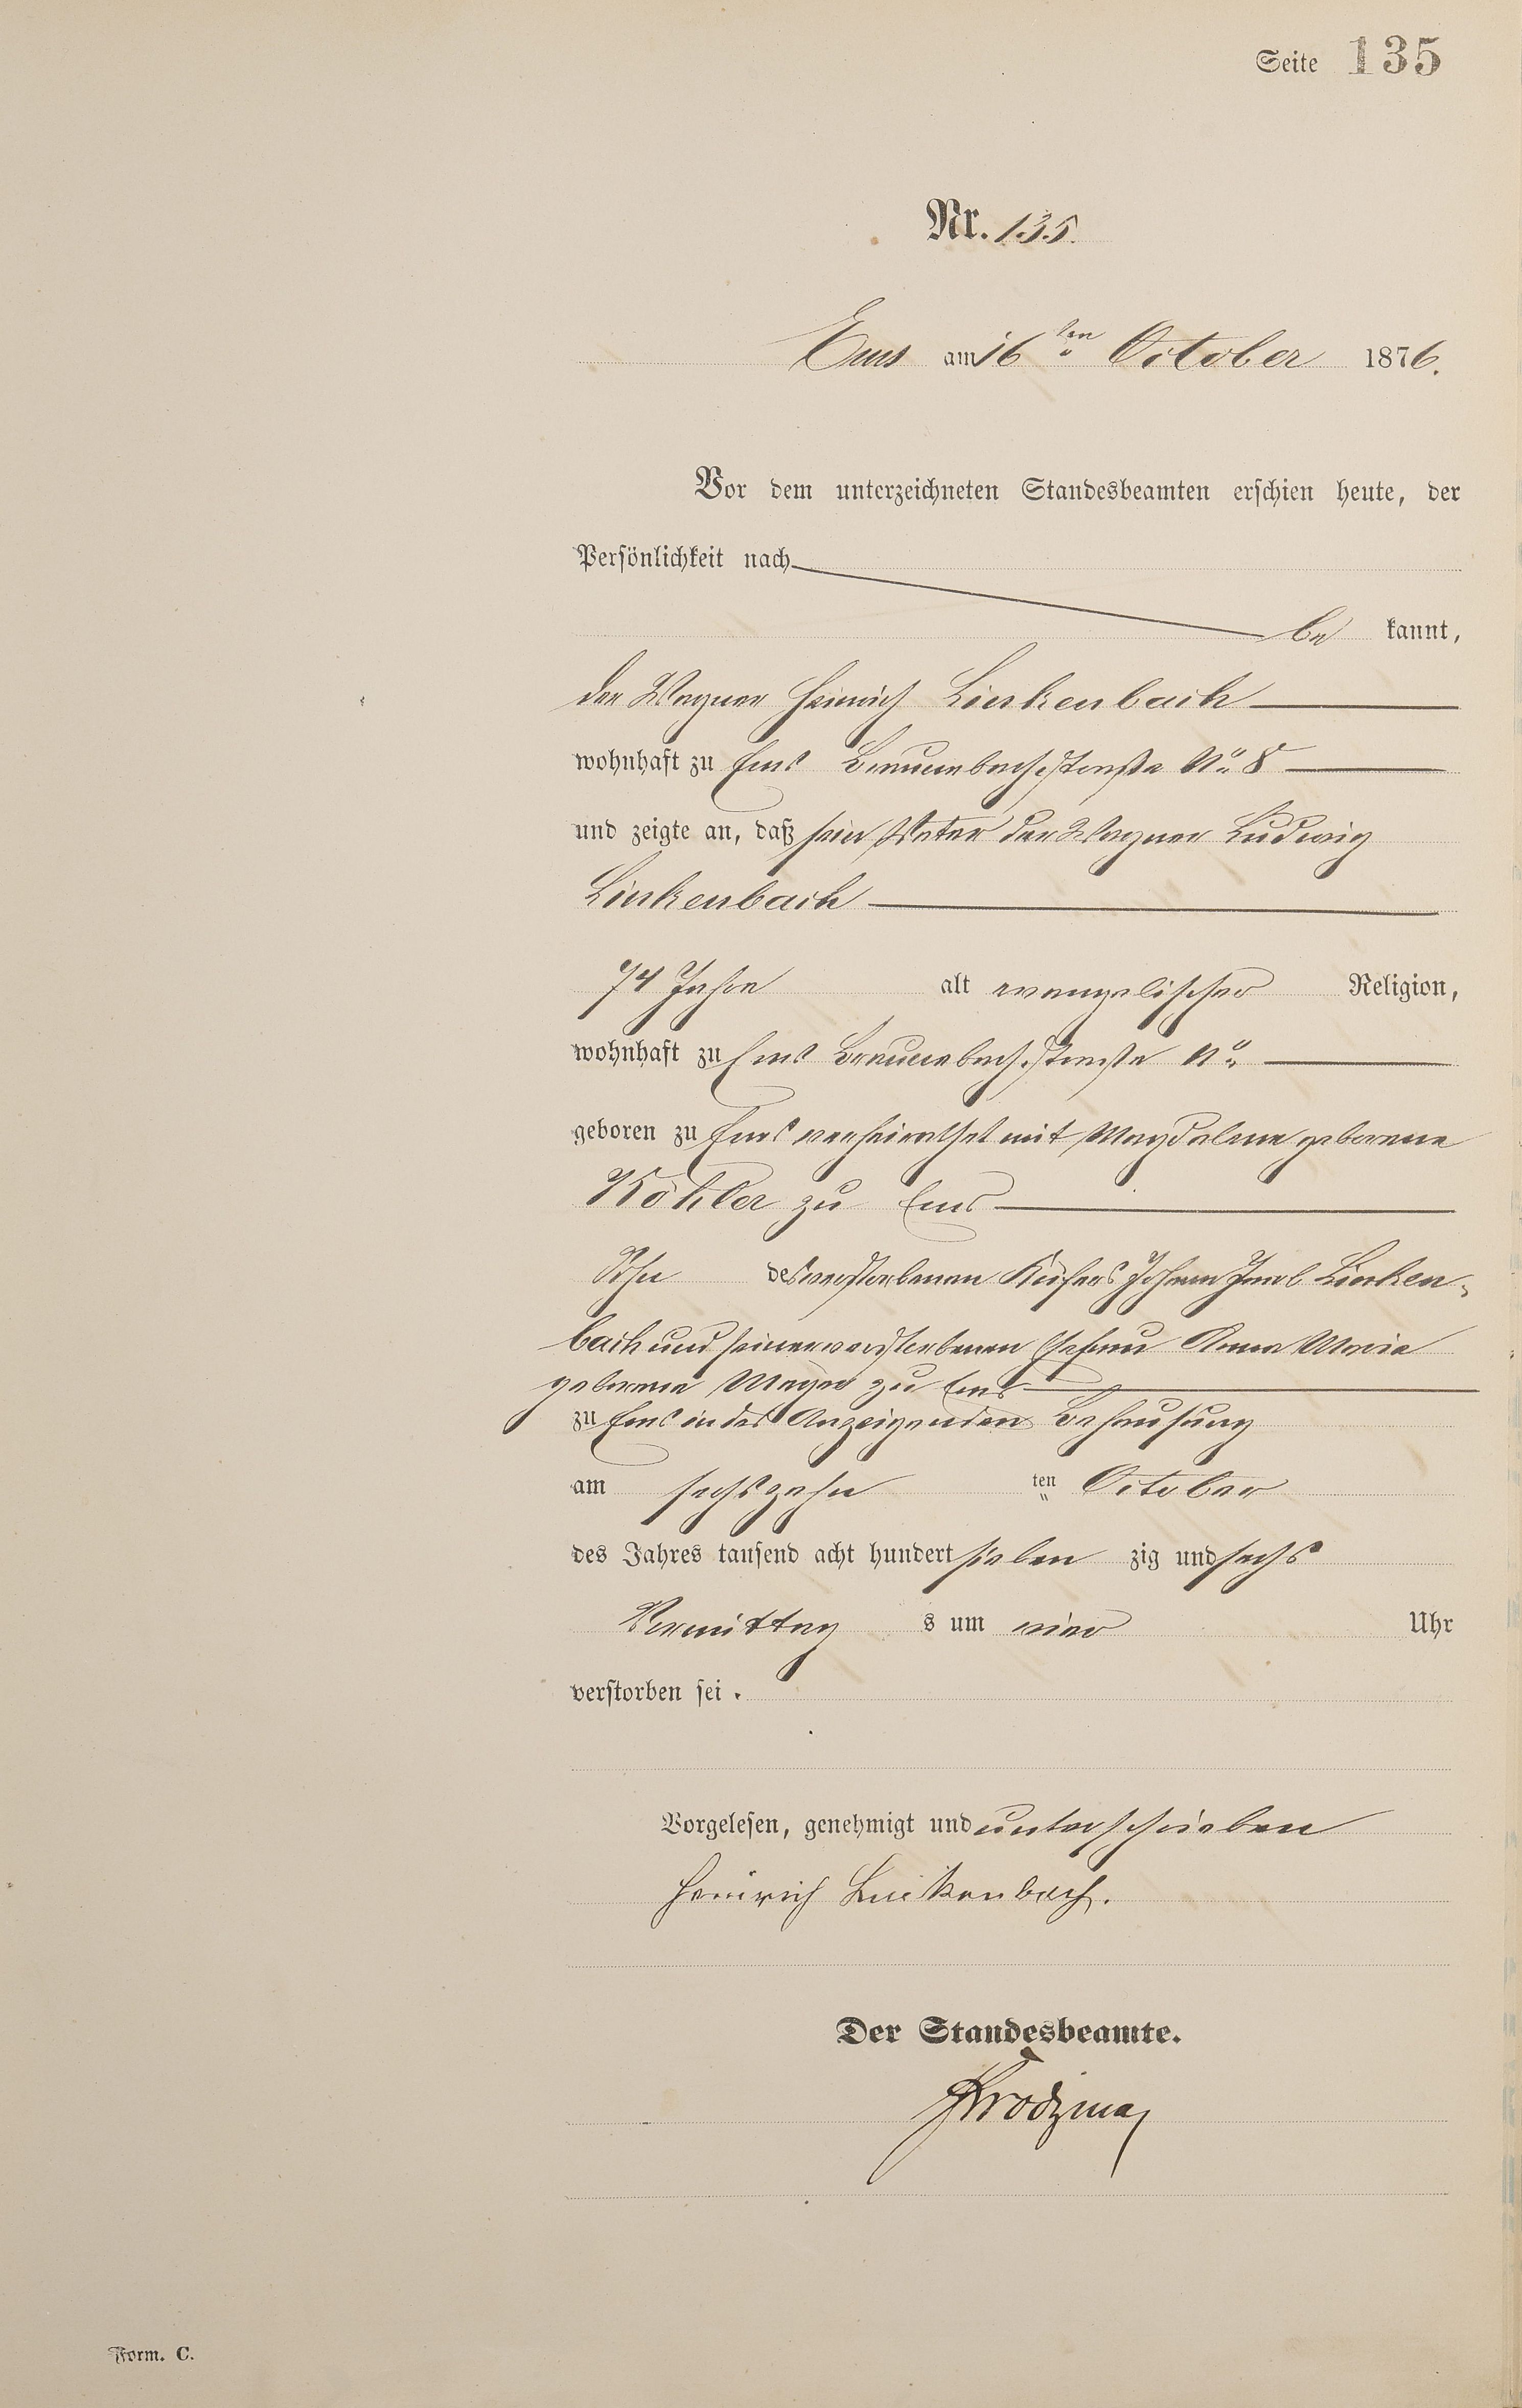 Seite 135
Nr. 135.
Ems am 16ten October 1876.
Vor dem unterzeichneten Standesbeamten erschien heute, der
Persönlichkeit nach
be kannt,
der Wagner Heinrich Linkenbach
wohnhaft zu Ems Braunebachstraße No. 8
und zeigte an, daß sein Vater der Wagner Ludwig
Linkenbach
74 Jahre alt evangelischer Religion,
wohnhaft zu Ems Braunebachstraße No.
geboren zu Ems verheirathet mit Magdalene geborene
Köhler zu Ems
Sohn des verstorbenen Küfers Johann Jacob Linken-
bach und seiner verstorbenen Ehefrau Anna Maria
geborene Meyer zu Ems
zu Ems in des Anzeigenden Behausung
am sechszehn ten October
des Jahres tausend acht hundert sieben zig und sechs
Vormittag s um vier Uhr
verstorben sei.
Vorgelesen, genehmigt und unterschrieben
Heinrich Linkenbach.
Der Standesbeamte.
Form. C.